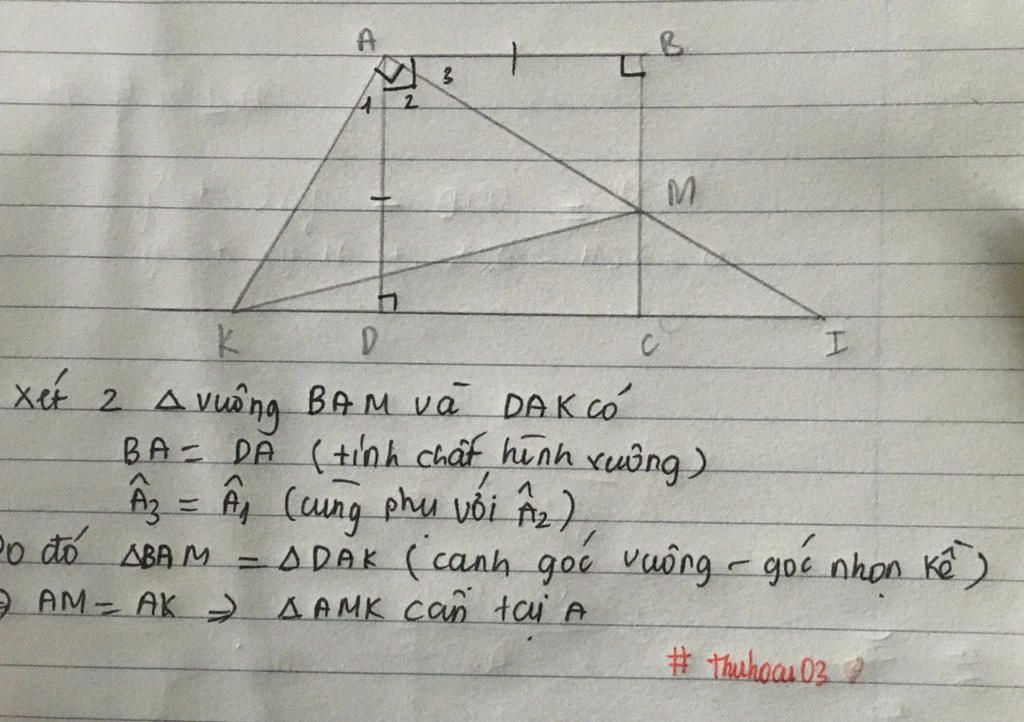 A
B
3
1
2
M
K
D
C
I
xét 2 Δ vuông BAM và DAK có
BA = DA (tính chất hình vuông)
Â3 = Â1 (cùng phụ với Â2)
Do đó ΔBAM = ΔDAK (cạnh góc vuông - góc nhọn kề)
⇒ AM = AK ⇒ ΔAMK cân tại A
# thuhoau03